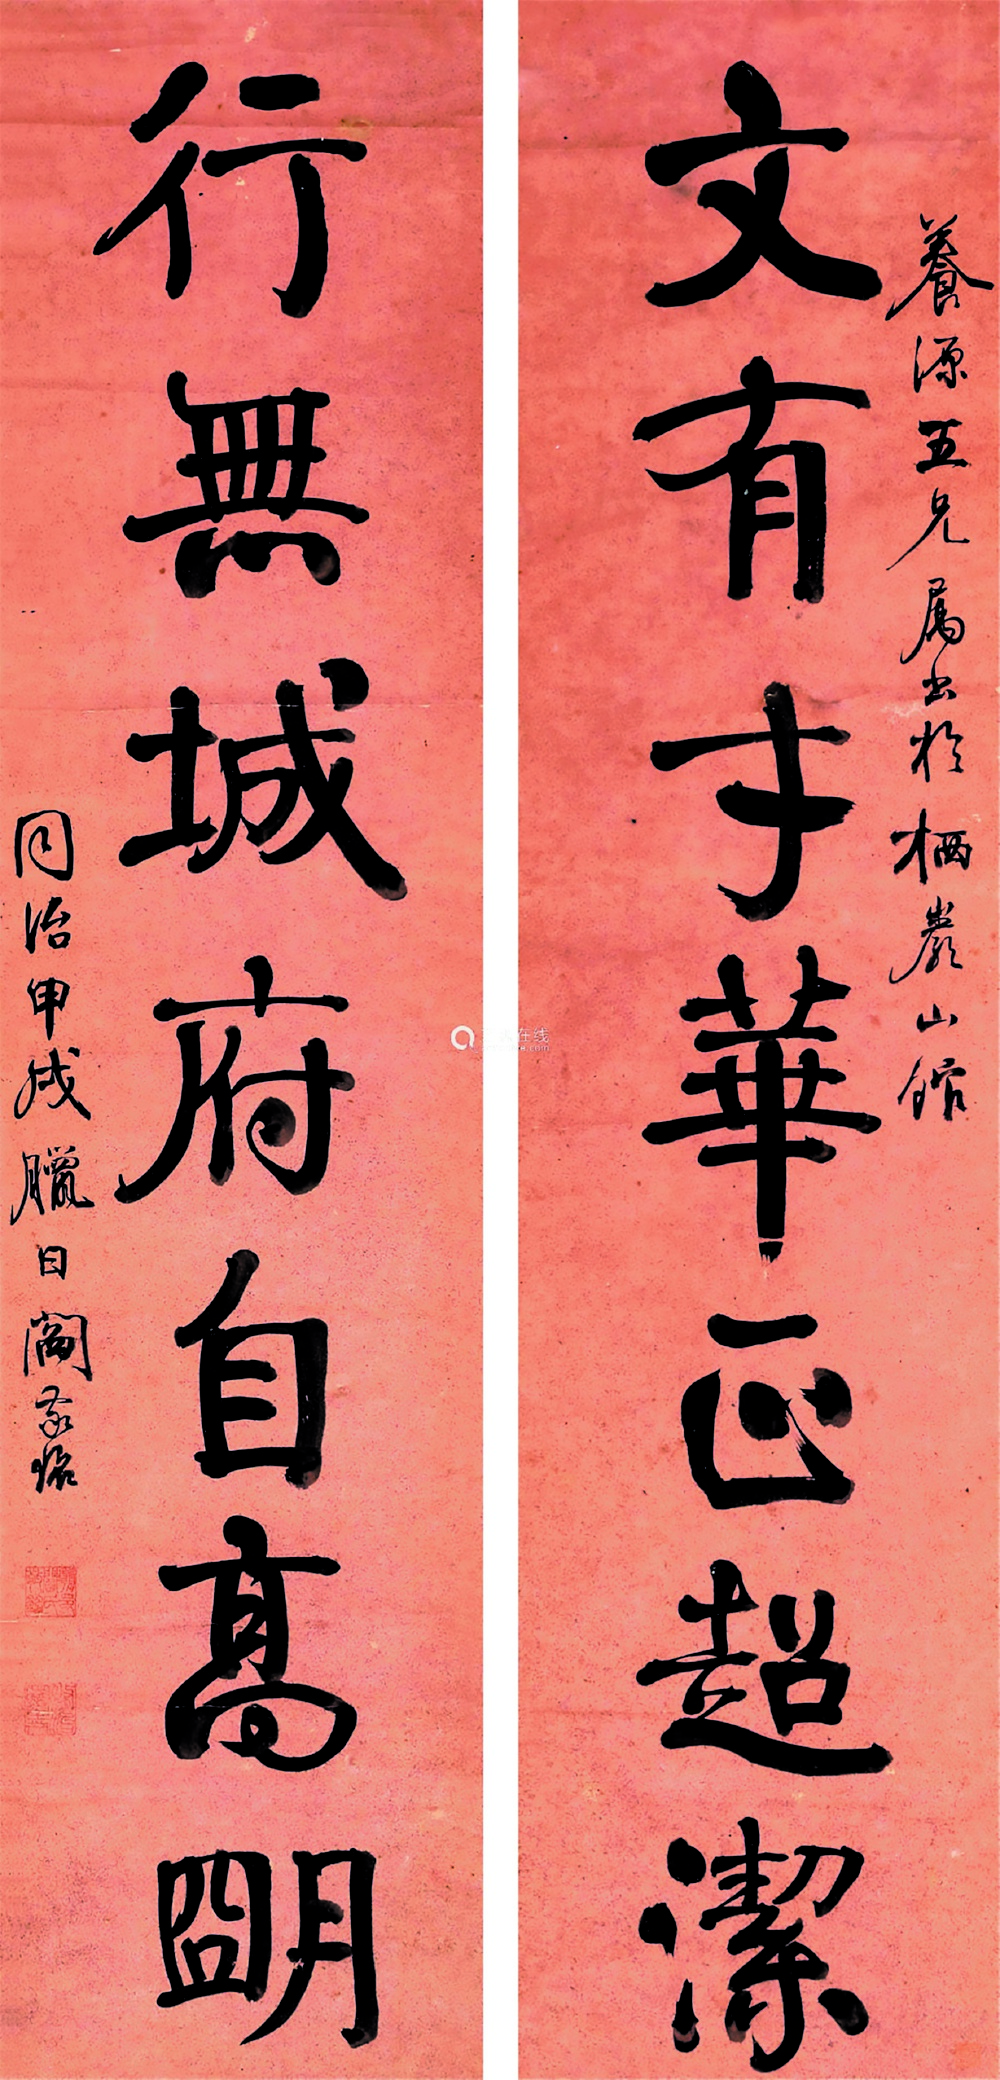 養源五兄属書於栖巖山館
文有才華正超潔
行無城府自高明
同治甲戌臘日閻敬銘